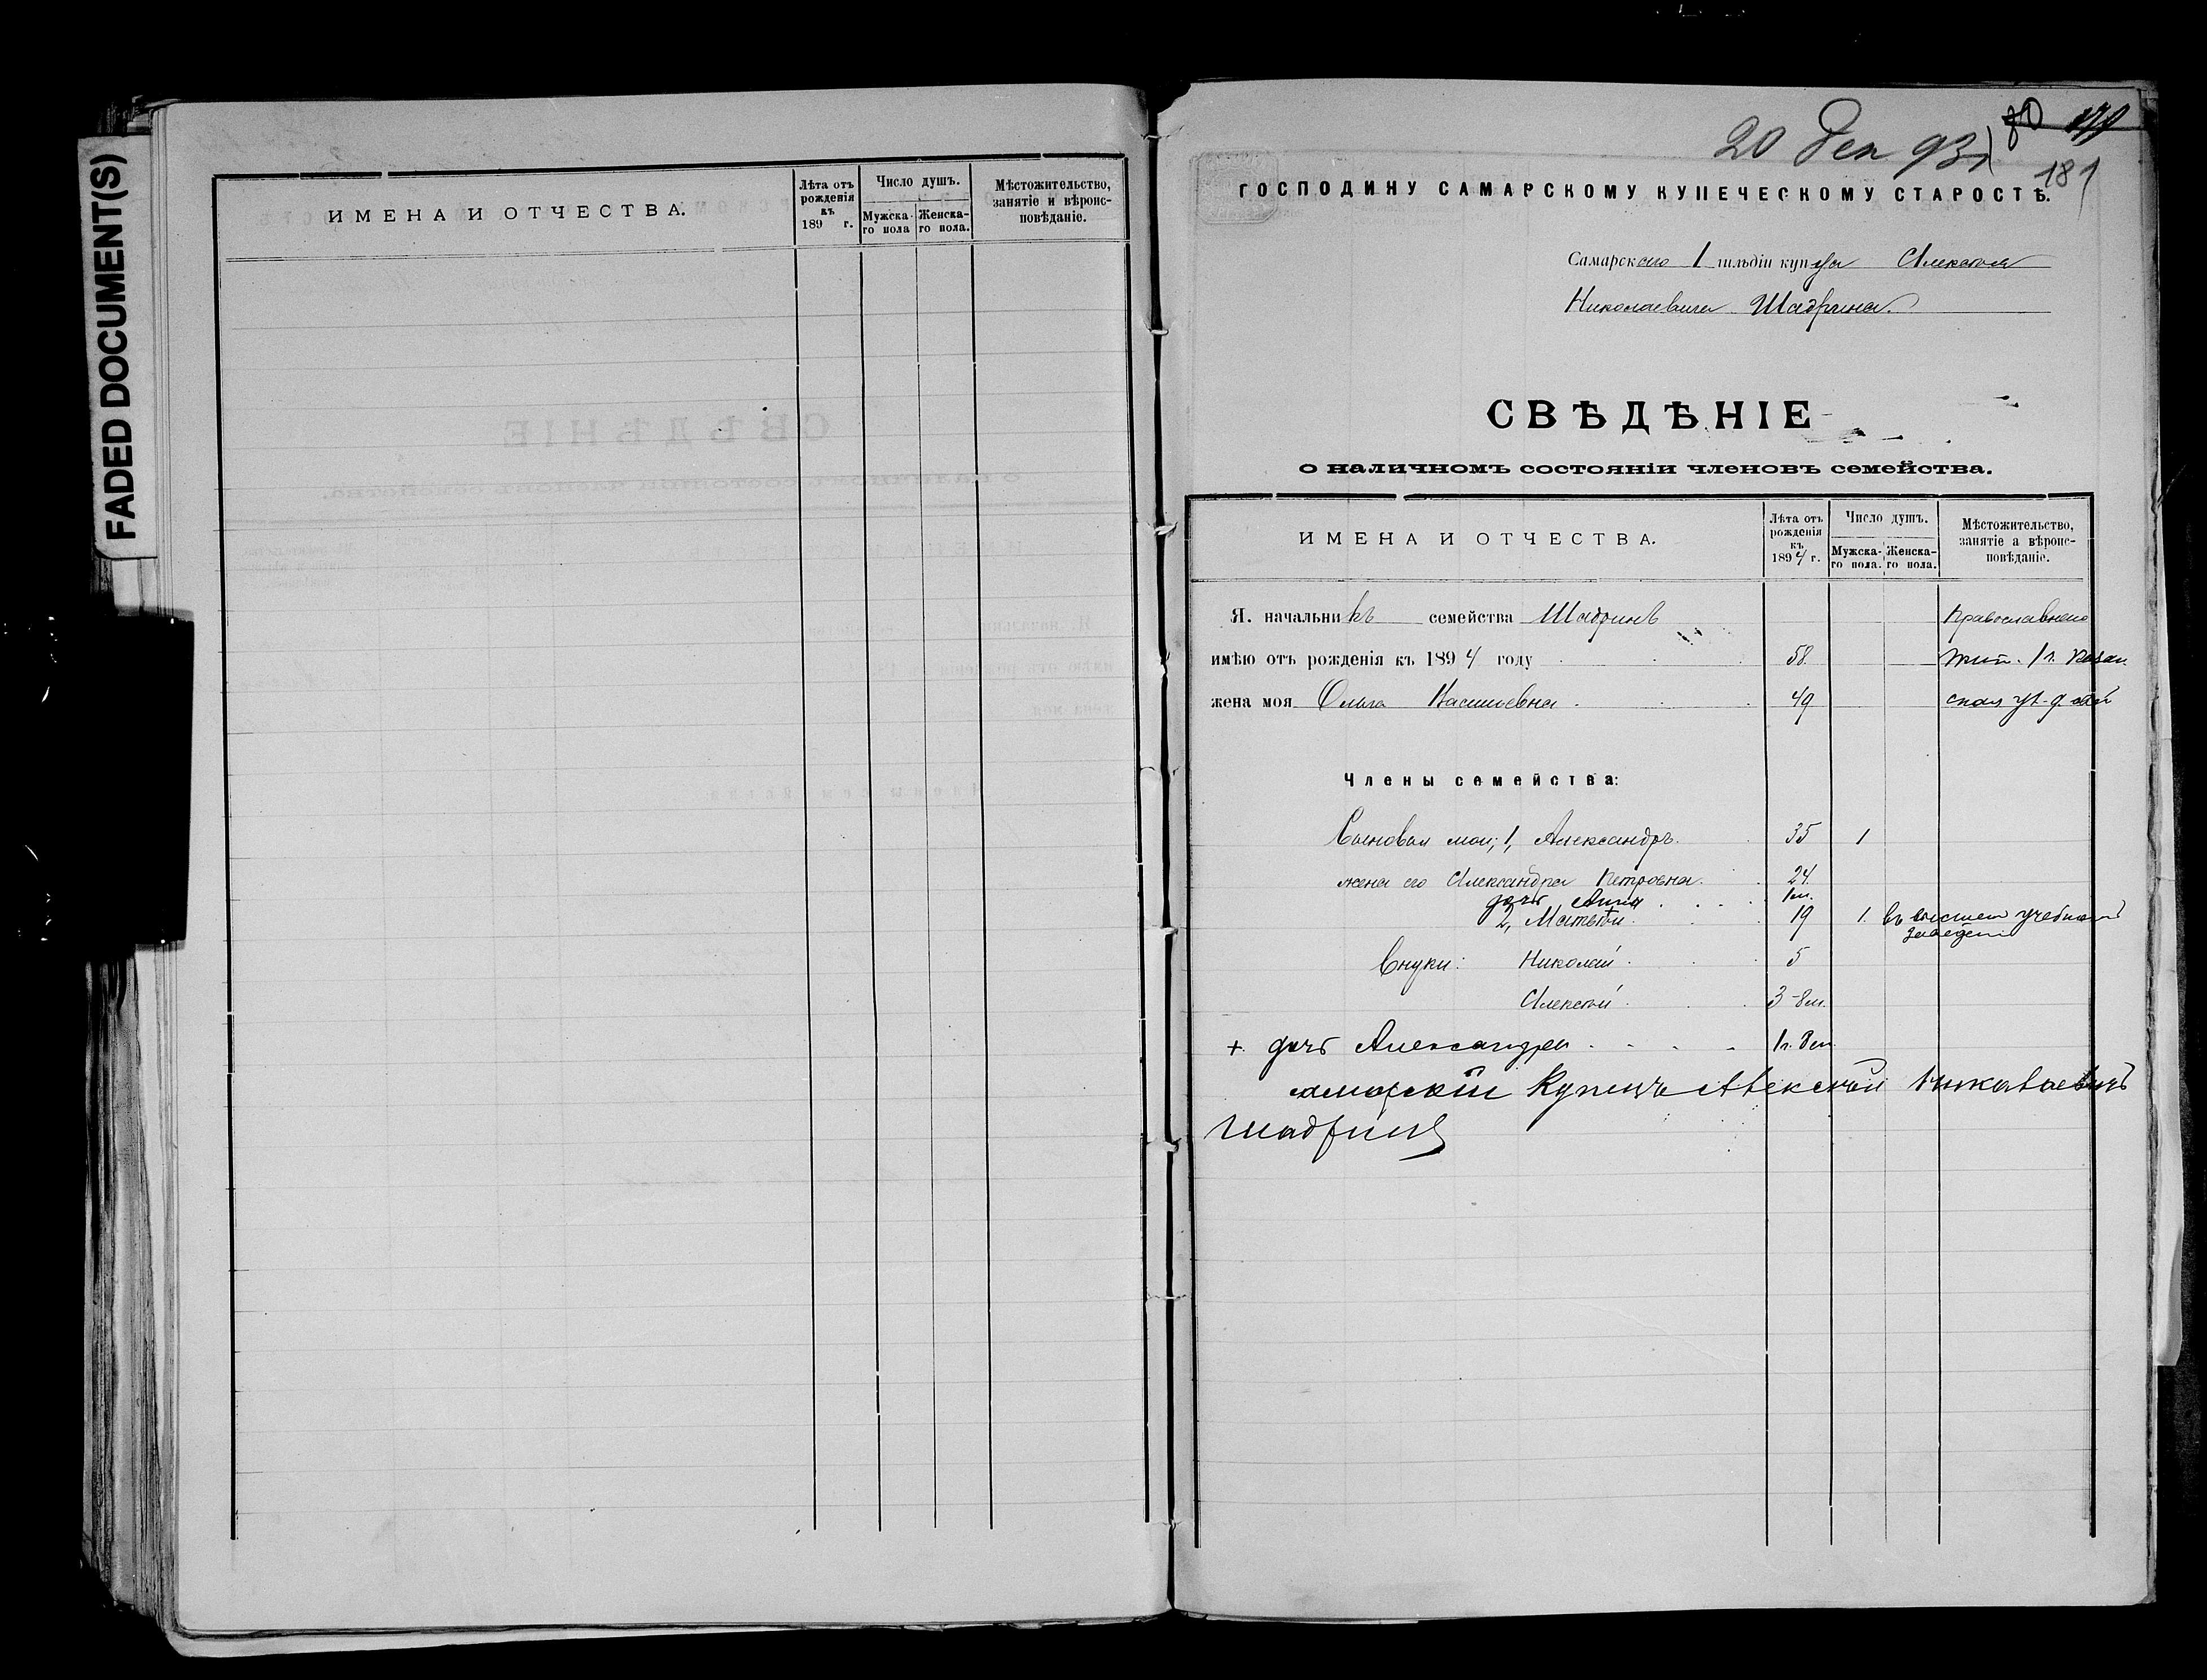 FADED DOCUMENT(S)
ИМЕНА И ОТЧЕСТВА.
Лѣта отъ рожденія къ 189 г.
Число душъ.
Мужска-го пола
Женска-го пола.
Мѣстожительство, занятіе и вѣроис-повѣданіе.
20 Дек 93 г
181
ГОСПОДИНУ САМАРСКОМУ КУПЕЧЕСКОМУ СТАРОСТѢ.
Самарскаго 1 гильдіи купца Алексѣя
Николаевича Шадрина.
СВѢДѢНІЕ
о наличномъ состояніи членовъ семейства.
ИМЕНА И ОТЧЕСТВА.
Лѣта отъ рожденія къ 1894 г.
Число душъ.
Мужска-го пола.
Женска-го пола.
Мѣстожительство, занятіе а вѣроис-повѣданіе.
Я. начальникъ семейства Шадринъ Православнаго
имѣю отъ рожденія къ 1894 году 58. жит. 1 г. Казан
жена моя Ольга Васильевна 49 ская ул. д.
Члены семейства:
Сыновья мои; 1, Александръ. 35 1
жена его Александра Петровна. 24.
дочь Анна 1м.
2, Матвѣй. 19 1. въ высшем учебном
заведен
Внуки: Николай 5
Алексѣй 3-8м.
+ дочь Александра 1г. 8м.
самарскій Купецъ Алексѣй Николаевичъ
Шадринъ